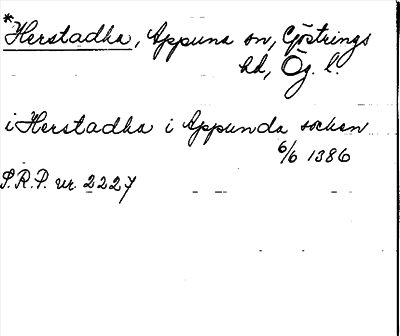 *Herstadha, Appuna sn, Göstrings
hd, Ög. l.
i Herstadha i Appunda socken
6/6 1386
S.R.P. nr. 2227